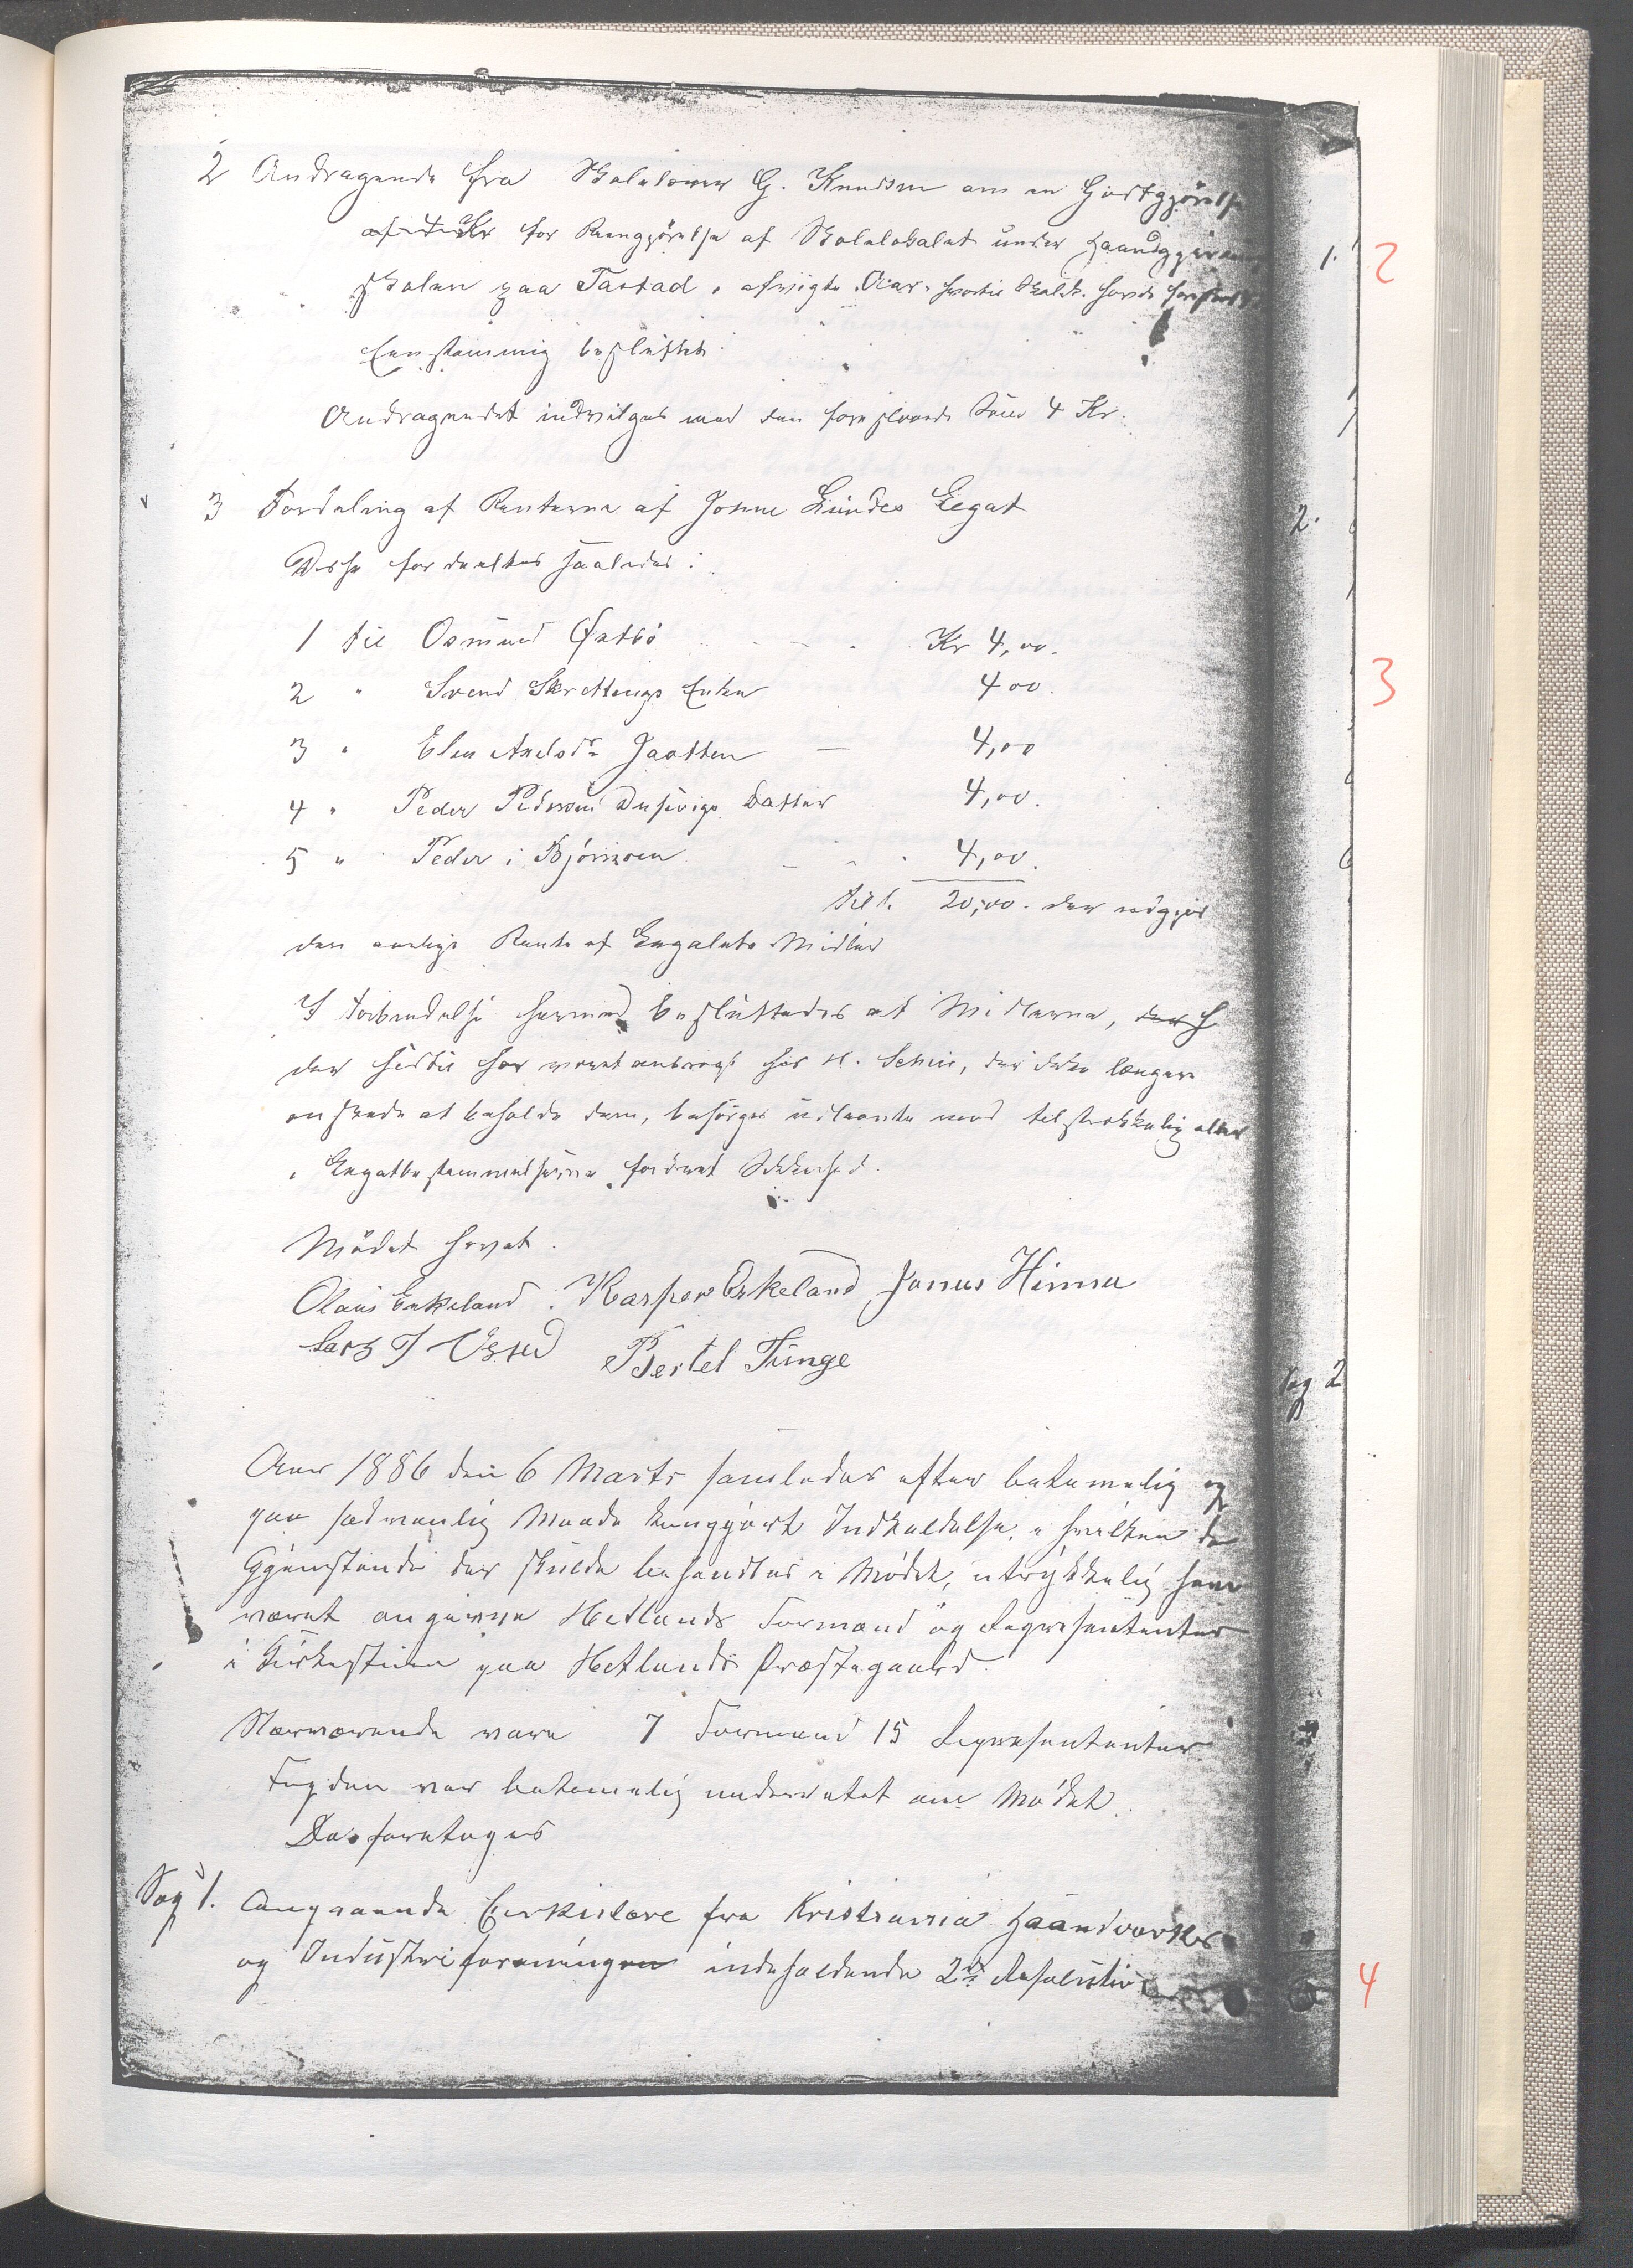 2 Andragende fra Skolelærer G. Knudsen om en Godtgjörelse
af 4 Kr for Rengjörelse af Skolelokalet under Haandgjernings
skolen paa Tastad i afvigte Aar, hvortil Skolek. havde
Eenstemmig besluttet:
Andragendet indvilges med den foreslaaede Sum 4 Kr.
3 Fordeling af Renterne af Jonne Lundes Legat
Disse fordeeltes saaledes:
1 til Osmund Østbö Kr 4,00.
2 " Svend Skrettings Enke 4 00.
3 " Elen Axelsdr Jaatten — 4,00
4 " Peder Pedersen Dusevigs Datter 4,00.
5 " Peder i Björnson 4,00.
tils. 20,00. der udgjör
den aarlige Rente af Legatets Midler
I Forbindelse hermed besluttedes at Midlerne, der h
der hidtil har været anbragt hos H. Schie, der ikke længere
önskede at beholde dem, besörges udlaante mod tilstrekkelig eller
i Legatbestemmelserne fordret Sikkerhed.
Mödet hævet.
Olaus Eskeland. Kasper Eskeland Jonas Hinna
Lars T Bertel Tunge
Sag 2
Aar 1886 den 6 Marts samledes efter betimelig og
paa sedvanlig Maade kungjort Indkaldelse, i hvilken de
Gjenstande der skulde behandles i Mödet, utrykkelig have
været angivne Hetlands Formænd og Repræsentanter
i Kirkestuen paa Hetlands Præstegaard.
Nærværende vare 7 Formænd 15 Repræsentanter
Fogden var betimelig underrettet om Mödet.
Da foretoges
Sag 1. Angaaende Cirkulære fra Kristiania Haandverks
og Industriforeningen indeholdende 2de Resolutioner
1.
2.
2
3
4